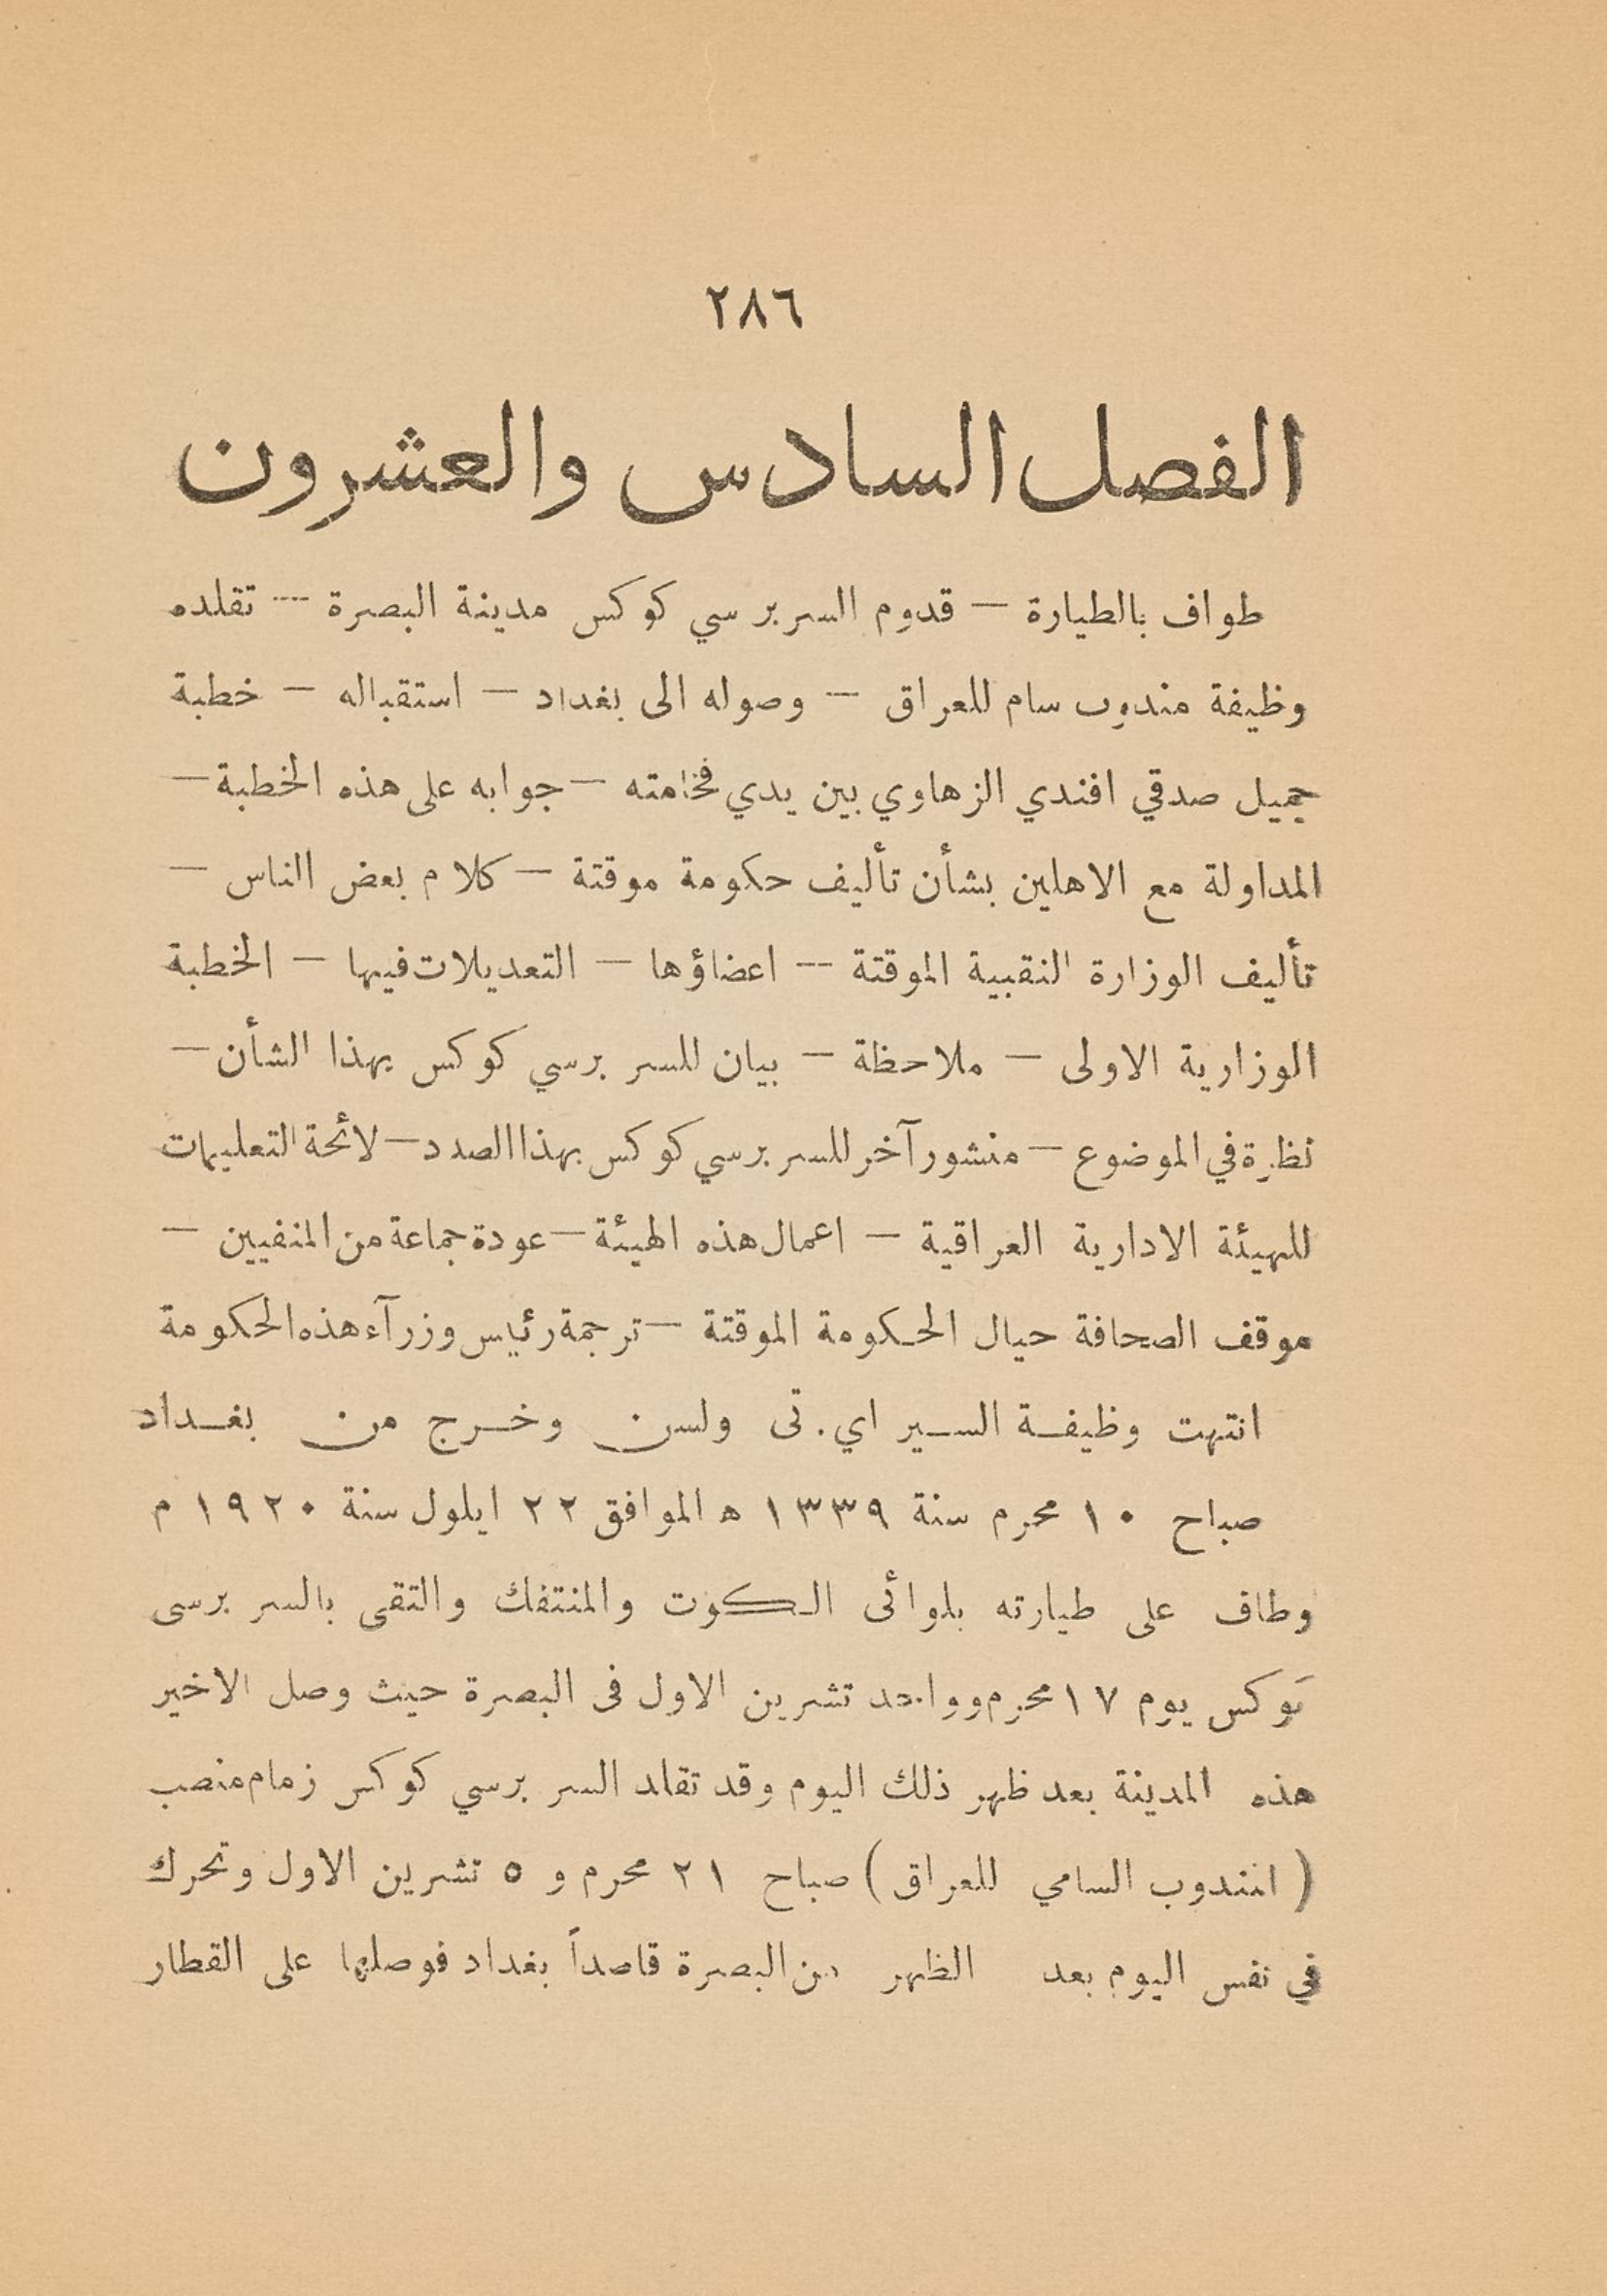 ٢٨٦
الفصل السادس والعشرون
طواف بالطيارة — قدوم السر برسي كوكس مدينة البصرة — تقلده
وظيفة مندوب سام للعراق — وصوله الى بغداد — استقباله — خطبة
جميل صدقي افندي الزهاوي بين يدي فخامته — جوابه على هذه الخطبة —
المداولة مع الاهلين بشأن تأليف حكومة موقتة — كلام بعض الناس —
تأليف الوزارة النقيبية الموقتة — اعضاؤها — التعديلات فيها — الخطبة
الوزارية الاولى — ملاحظة — بيان للسر برسي كوكس بهذا الشأن —
نظرة في الموضوع — منشور آخر للسر برسي كوكس بهذا الصدد — لائحة التعليمات
للهيئة الادارية العراقية — اعمال هذه الهيئة — عودة جماعة من المنفيين —
موقف الصحافة حيال الحكومة الموقتة — ترجمة رئيس وزرآء هذه الحكومة
انتهت وظيفة السير اي. تى ولسن وخرج من بغداد
صباح ١٠ محرم سنة ١٣٣٩ ه الموافق ٢٢ ايلول سنة ١٩٢٠ م
وطاف على طيارته بلوائى الكوت والمنتفك والتقى بالسر برسى
كوكس يوم ١٧ محرم وواحد تشرين الاول فى البصرة حيث وصل الاخير
هذه المدينة بعد ظهر ذلك اليوم وقد تقلد السر برسي كوكس زمام منصب
( المندوب السامي للعراق ) صباح ٢١ محرم و ٥ تشرين الاول وتحرك
في نفس اليوم بعد الظهر من البصرة قاصداً بغداد فوصلها على القطار